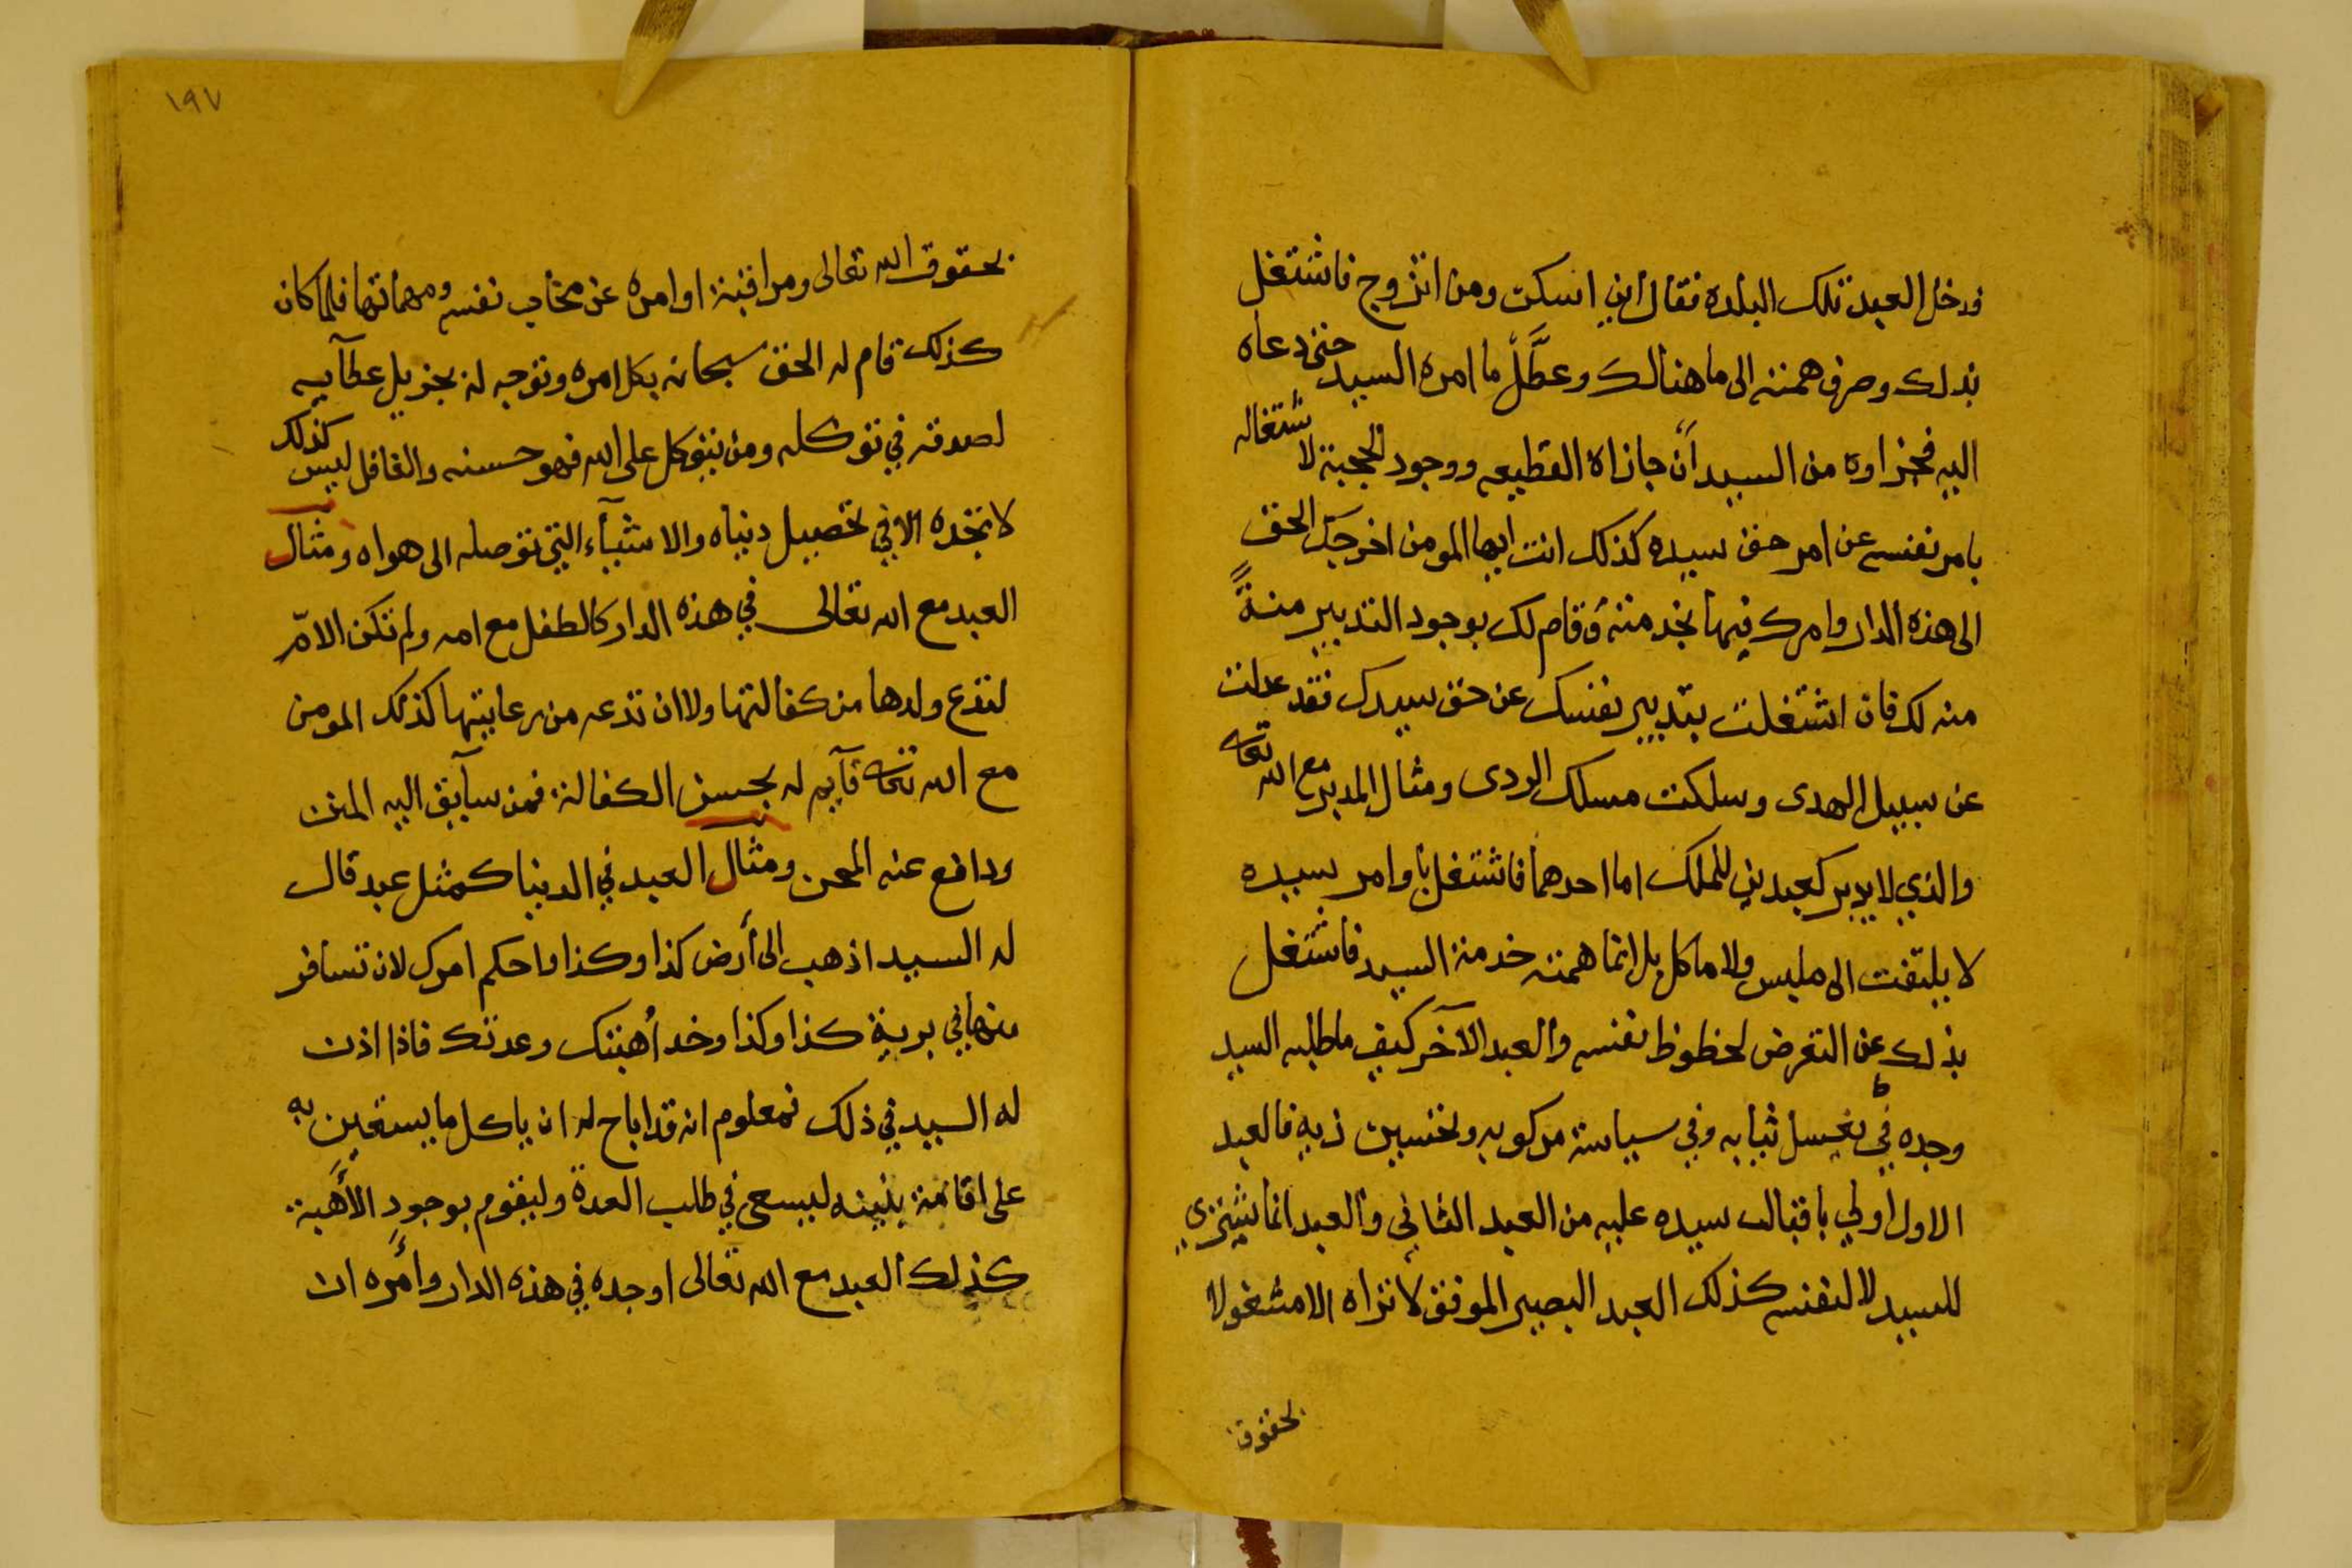 فدخل العبد تلك البلده فقال اين اسكن ومن اتزوج فاشتغل
بذلك وصرف همته الى ما هنالك وعطَّل ما امره السيد حتى دعاه
اليه فجزاوه من السيد أن جازاه القطيعه ووجود الحجبة لاشتغاله
بامر نفسه عن امر حق سيده كذلك انت ايها المومن اخرجك الحق
الى هذه الدار وامرك فيها بخدمته وقام لك بوجود التدبير منةً
منه لك فان اشتغلت بتدبير نفسك عن حق سيدك فقد عدلت
عن سبيل الهدى وسلكت مسلك الردى ومثال المدبر مع الله تعالى
والذي لا يدبر كعبدين للملك اما احدهما فاشتغل باوامر سيده
لا يلتفت الى ملبس ولا ماكل بل انما همته خدمة السيد فاشتغل
بذلك عن التعرض لحظوظ نفسه والعبد الآخر كيف ما طلبه السيد
وجده في يغسل ثيابه وفي سياسة مركوبه وتحسين زيه فالعبد
الاول اولي باقبال سيده عليه من العبد الثاني والعبد انما يشتري
للسيد لا لنفسه كذلك العبد البصير الموفق لا تراه الا مشغولا
بحقوق
١٩٧
بحقوق الله تعالى ومراقبة اوامره عن محاب نفسه ومهماتها فلما كان
كذلك قام له الحق سبحانه بكل امره وتوجه له بجزيل عطآيه
لصدقه في توكله ومن يتوكل على الله فهو حسبه والغافل ليس كذلك
لا تجده الا في تحصيل دنياه والاشيآء التي توصله الى هواه ومثال
العبد مع الله تعالى في هذه الدار كالطفل مع امه ولم تكن الامّ
لتدع ولدها من كفالتها ولا ان تدعه من رعايتها كذلك المومن
مع الله تعالى قآيم له بحسن الكفالة فمن سآيق اليه المنن
ودافع عنه المحن ومثال العبد في الدنيا كمثل عبد قال
له السيد اذهب الى أرض كذا وكذا واحكم امرك لان تسافر
منها في برية كذا وكذا وخذ أهبتك وعدتك فاذا اذن
له السيد في ذلك فمعلوم انه قد اباح له ان ياكل ما يستعين به
على اقامة بنيته ليسعى في طلب العدة وليقوم بوجود الأهبة
كذلك العبد مع الله تعالى اوجده في هذه الدار وأمره ان